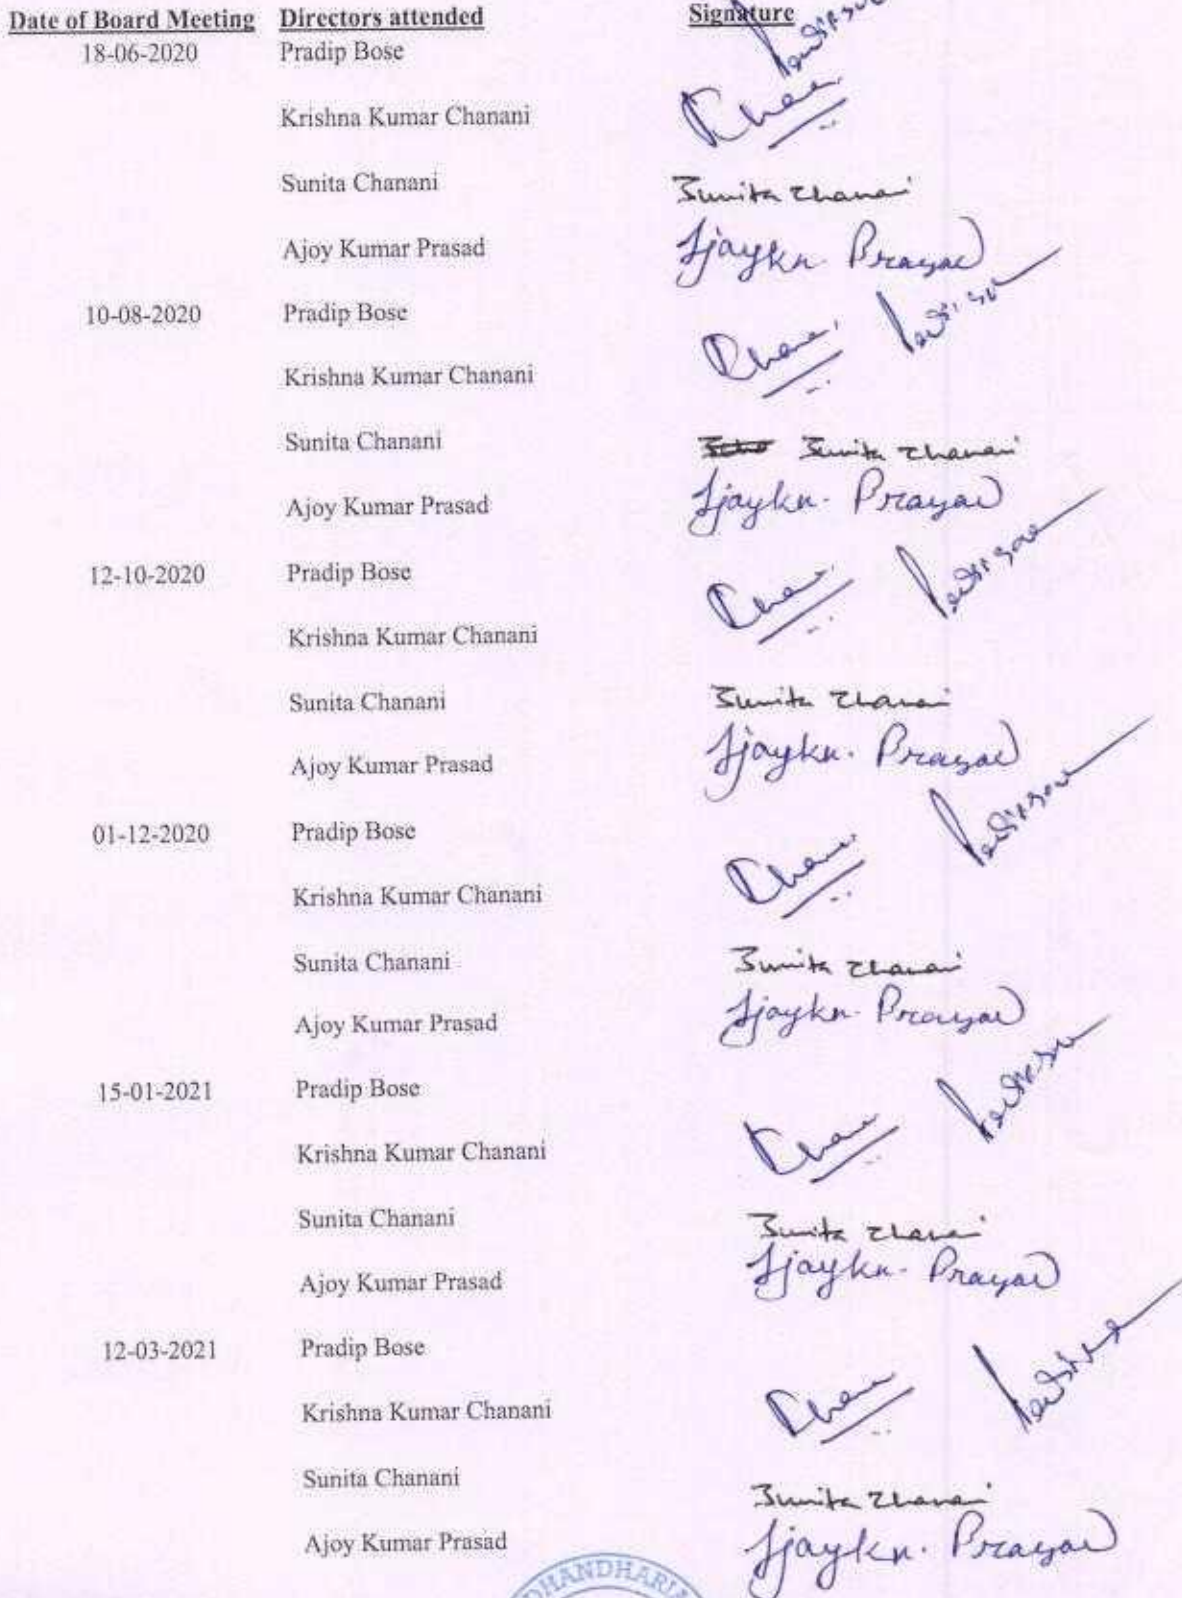 Date of Board Meeting Directors attended Signature
18-06-2020 Pradip Bose
Krishna Kumar Chanani
Sunita Chanani Sunita Chanani
Ajoy Kumar Prasad Ajaykr. Prasad
10-08-2020 Pradip Bose
Krishna Kumar Chanani
Sunita Chanani Sunita Chanani
Ajoy Kumar Prasad Ajaykr. Prasad
12-10-2020 Pradip Bose
Krishna Kumar Chanani
Sunita Chanani Sunita Chanani
Ajoy Kumar Prasad Ajaykr. Prasad
01-12-2020 Pradip Bose
Krishna Kumar Chanani
Sunita Chanani Sunita Chanani
Ajoy Kumar Prasad Ajaykr. Prasad
15-01-2021 Pradip Bose
Krishna Kumar Chanani
Sunita Chanani Sunita Chanani
Ajoy Kumar Prasad Ajaykr. Prasad
12-03-2021 Pradip Bose
Krishna Kumar Chanani
Sunita Chanani Sunita Chanani
Ajoy Kumar Prasad Ajaykr. Prasad